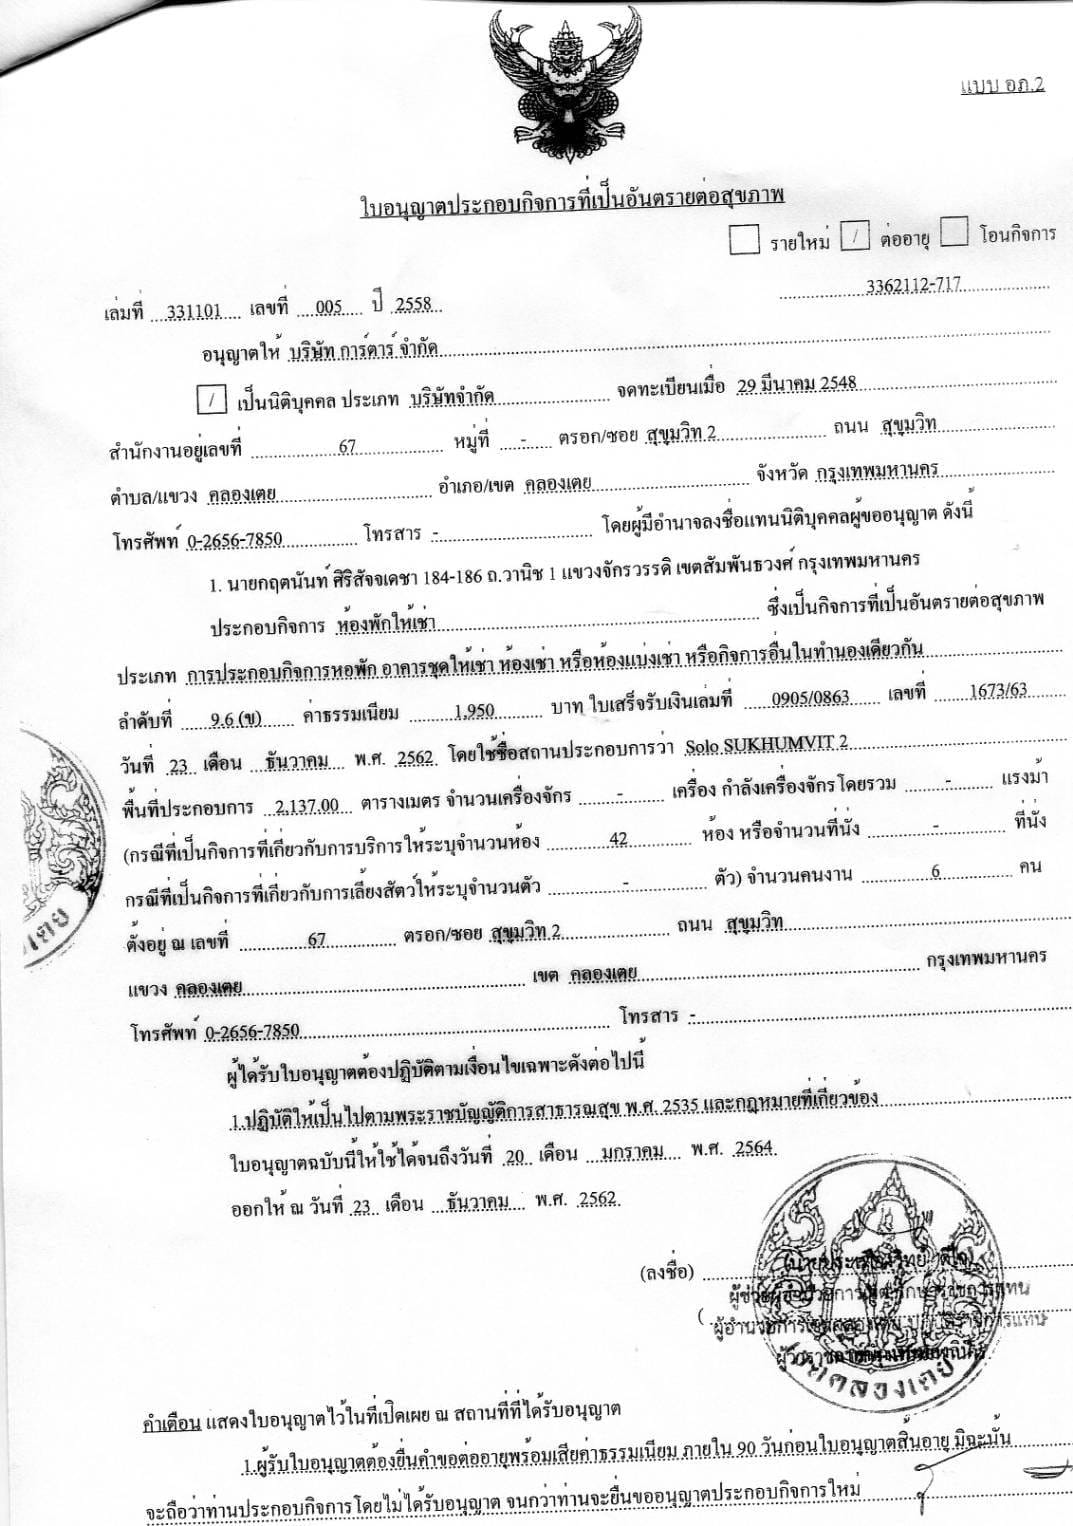 แบบ อภ.2
ใบอนุญาตประกอบกิจการที่เป็นอันตรายต่อสุขภาพ
รายใหม่ / ต่ออายุ โอนกิจการ
3362112-717
เล่มที่ 331101 เลขที่ 005 ปี 2558
อนุญาตให้ บริษัท การ์ดาร์ จำกัด
/ เป็นนิติบุคคล ประเภท บริษัทจำกัด จดทะเบียนเมื่อ 29 มีนาคม 2548
สำนักงานอยู่เลขที่ 67 หมู่ที่ - ตรอก/ซอย สุขุมวิท 2 ถนน สุขุมวิท
ตำบล/แขวง คลองเตย อำเภอ/เขต คลองเตย จังหวัด กรุงเทพมหานคร
โทรศัพท์ 0-2656-7850 โทรสาร - โดยผู้มีอำนาจลงชื่อแทนนิติบุคคลผู้ขออนุญาต ดังนี้
1. นายกฤตนันท์ ศิริสัจจเดชา 184-186 ถ.วานิช 1 แขวงจักรวรรดิ เขตสัมพันธวงศ์ กรุงเทพมหานคร
ประกอบกิจการ ห้องพักให้เช่า ซึ่งเป็นกิจการที่เป็นอันตรายต่อสุขภาพ
ประเภท การประกอบกิจการหอพัก อาคารชุดให้เช่า ห้องเช่า หรือห้องแบ่งเช่า หรือกิจการอื่นในทำนองเดียวกัน
ลำดับที่ 9.6 (ข) ค่าธรรมเนียม 1,950 บาท ใบเสร็จรับเงินเล่มที่ 0905/0863 เลขที่ 1673/63
วันที่ 23 เดือน ธันวาคม พ.ศ. 2562 โดยใช้ชื่อสถานประกอบการว่า Solo SUKHUMVIT 2
พื้นที่ประกอบการ 2,137.00 ตารางเมตร จำนวนเครื่องจักร - เครื่อง กำลังเครื่องจักรโดยรวม - แรงม้า
(กรณีที่เป็นกิจการที่เกี่ยวกับการบริการให้ระบุจำนวนห้อง 42 ห้อง หรือจำนวนที่นั่ง - ที่นั่ง
กรณีที่เป็นกิจการที่เกี่ยวกับการเลี้ยงสัตว์ให้ระบุจำนวนตัว - ตัว) จำนวนคนงาน 6 คน
ตั้งอยู่ ณ เลขที่ 67 ตรอก/ซอย สุขุมวิท 2 ถนน สุขุมวิท
แขวง คลองเตย เขต คลองเตย กรุงเทพมหานคร
โทรศัพท์ 0-2656-7850 โทรสาร -
ผู้ได้รับใบอนุญาตต้องปฏิบัติตามเงื่อนไขเฉพาะดังต่อไปนี้
1.ปฏิบัติให้เป็นไปตามพระราชบัญญัติการสาธารณสุข พ.ศ. 2535 และกฎหมายที่เกี่ยวข้อง
ใบอนุญาตฉบับนี้ให้ใช้ได้จนถึงวันที่ 20 เดือน มกราคม พ.ศ. 2564
ออกให้ ณ วันที่ 23 เดือน ธันวาคม พ.ศ. 2562
(ลงชื่อ)
คำเตือน แสดงใบอนุญาตไว้ในที่เปิดเผย ณ สถานที่ที่ได้รับอนุญาต
1.ผู้รับใบอนุญาตต้องยื่นคำขอต่ออายุพร้อมเสียค่าธรรมเนียม ภายใน 90 วันก่อนใบอนุญาตสิ้นอายุ มิฉะนั้น
จะถือว่าท่านประกอบกิจการโดยไม่ได้รับอนุญาต จนกว่าท่านจะยื่นขออนุญาตประกอบกิจการใหม่